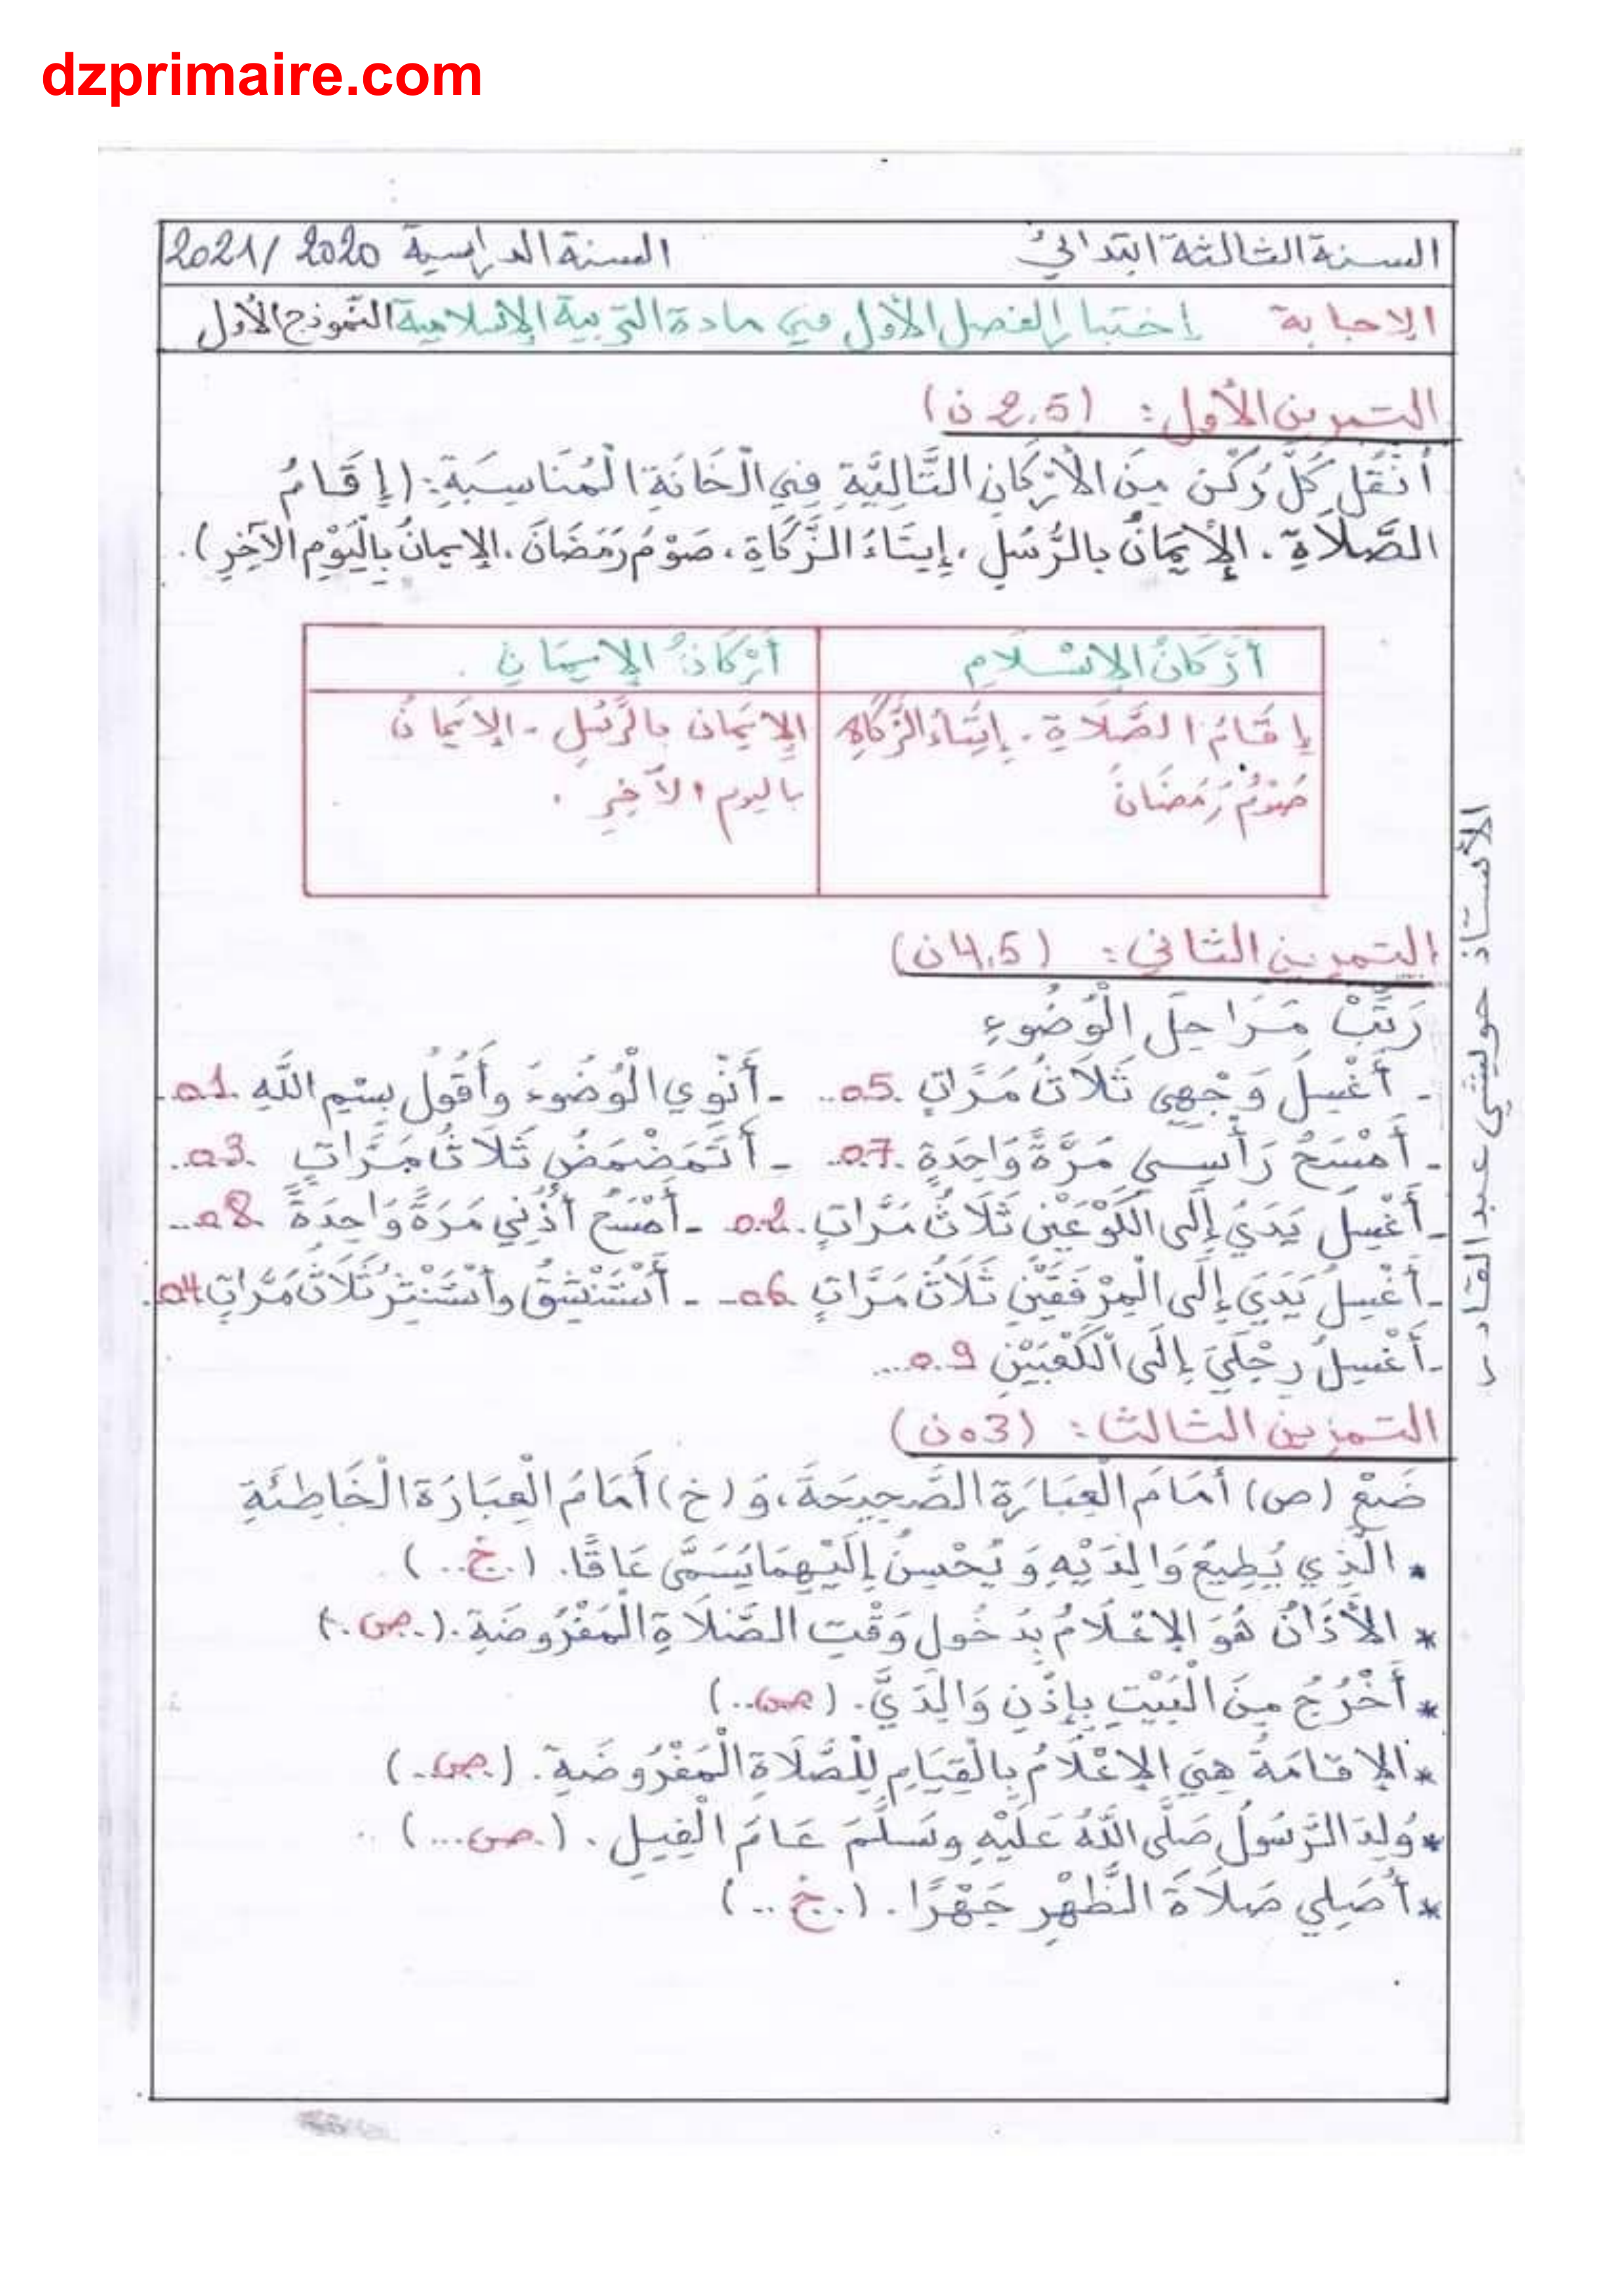 dzprimaire.com
السنة الثالثة ابتدائي السنة الدراسية 2020 /2021
الإجابة إختبار الفصل الأول في مادة التربية الإسلامية النموذج الأول
التمرين الأول : (2.5 ن)
أَنْقُلُ كُلَّ رُكْنٍ مِنَ الْأَرْكَانِ التَّالِيَّةِ فِي الْخَانَةِ الْمُنَاسِبَةِ : (إِقَامُ
الصَّلَاةِ . الْأِيمَانُ بالرُّسُلِ ، إِيتَاءُ الزَّكَاةِ ، صَوْمُ رَمَضَانَ . الإيمانُ بِالْيَوْمِ الآخِرِ) .
أَرْكَانُ الإِسْلَامِ أَرْكَانُ الإِيمَانِ .
إِقَامُ الصَّلَاةِ . إِيتَاءُ الزَّكَاةِ الإِيمَان بالرُّسُلِ - الإيمانُ
صَوْمُ رَمَضَانَ باليوم الآخِرِ .
التمرين الثاني : (4.5 ن)
رَتِّبْ مَرَاحِلَ الْوُضُوءِ
- أَغْسِلُ وَجْهِي ثَلَاثُ مَرَّاتٍ .05.. - أَنْوِي الْوُضُوءَ وأَقُولُ بِسْمِ اللَّهِ .01.
- أَمْسَحُ رَأْسِي مَرَّةً وَاحِدَةٍ .07.. - أَتَمَضْمَضُ ثَلَاثُ مَرَّاتٍ .03..
- أَغْسِلُ يَدَيَّ إِلَى الكَوْعَيْنِ ثَلَاثُ مَرَّاتٍ .02.. - أَمْسَحُ أُذُنِي مَرَةً وَاحِدَةً .08..
- أَغْسِلُ يَدَيَ إِلَى الْمِرْفَقَيْنِ ثَلَاثُ مَرَّاتٍ .06.. - أَسْتَنْشِقُ وأَسْتَنْثِرُ ثَلَاثُ مَرَّاتٍ 04.
- أَغْسِلُ رِجْلَيَ إِلَى الْكَعْبَيْنِ 09....
التمرين الثالث : (03 ن)
ضَعْ (ص) أَمَامَ الْعِبَارَةِ الصَّحِيحَةَ ، وَ (خ) أَمَامَ الْعِبَارَة الْخَاطِئَةِ
• الَّذِي يُطِيعُ وَالِدَيْهِ وَيُحْسِنُ إِلَيْهِمَا يُسَمَّى عَاقًا . (.خ..) .
* الأَذَانُ هُوَ الإعْلَامُ بِدُخُولِ وَقْتِ الصَّلَاةِ الْمَفْرُوضَةِ . (.ص.)
* أَخْرُجُ مِنَ الْبَيْتِ بِإِذْنِ وَالِدَيَّ . (ص..)
* الإقَامَةُ هِيَ الإعْلَامُ بِالْقِيَامِ لِلْصَّلَاةِ الْمَفْرُوضَةِ . (.ص..)
* وُلِدَ الرَّسُولُ صَلَّى اللَّهُ عَلَيْهِ وسَلَّمَ عَامَ الْفِيلِ . (.ص...)
* أُصَلِي صَلَاةَ الظُّهْرِ جَهْرًا . (.خ..)
الأستاذ حويشي عبد القادر